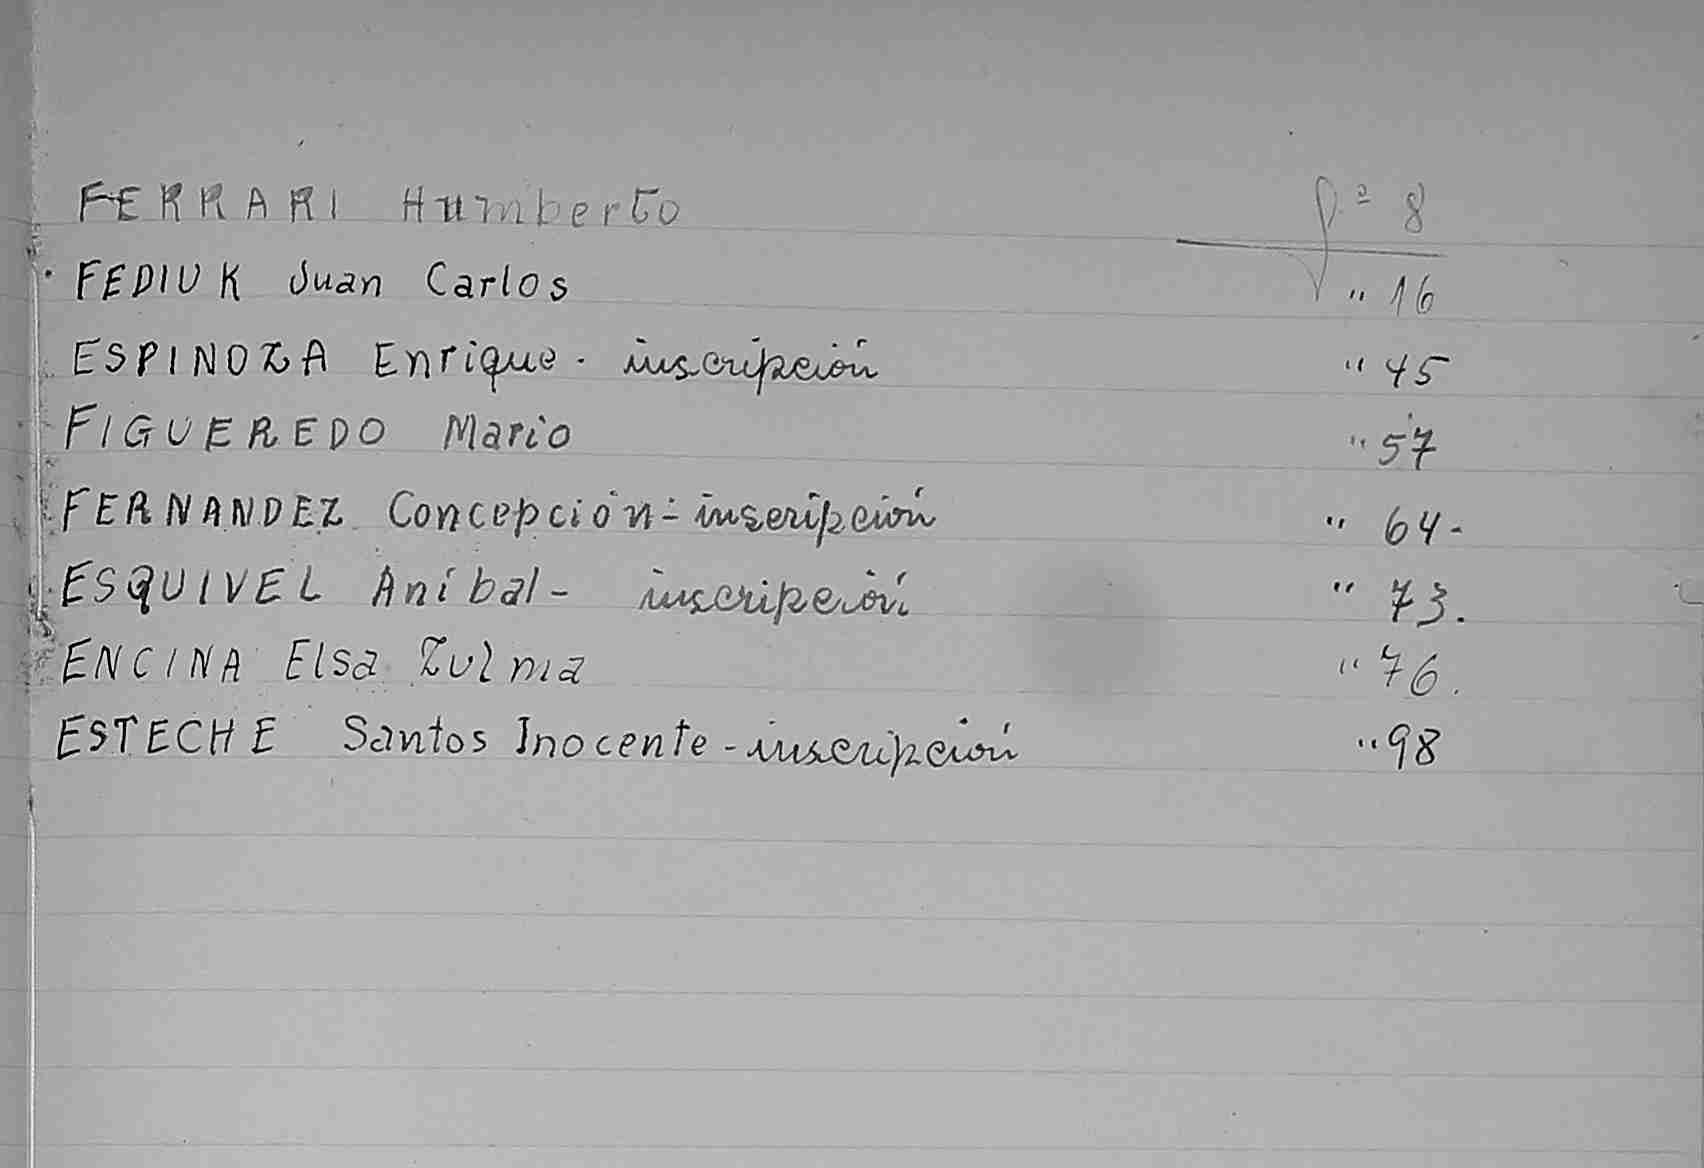 FERRARI Humberto fº 8
FEDIUK Juan Carlos " 16
ESPINOZA Enrique - inscripción " 45
FIGUEREDO Mario " 57
FERNANDEZ Concepción - inscripción " 64-
ESQUIVEL Aníbal - inscripción " 73.
ENCINA Elsa Zulma " 76.
ESTECHE Santos Inocente - inscripción " 98